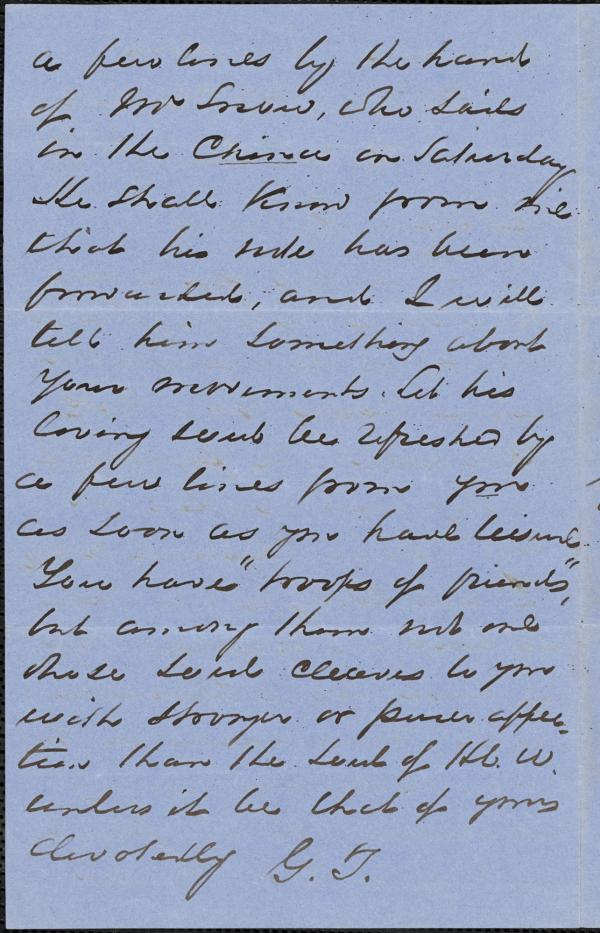 a few lines by the hand
of Mr Snow, who sails
in the China on Saturday
He shall know from me
that his note has been
forwarded, and I will
tell him something about
your movements. Let his
loving soul be refreshed by
a few lines from you
as soon as you have leisure.
You have "troops of friends",
but among them not one
whose soul cleaves to you
with stronger or purer affec-
tion than the soul of H. C. W.
unless it be that of yours
devotedly G. T.